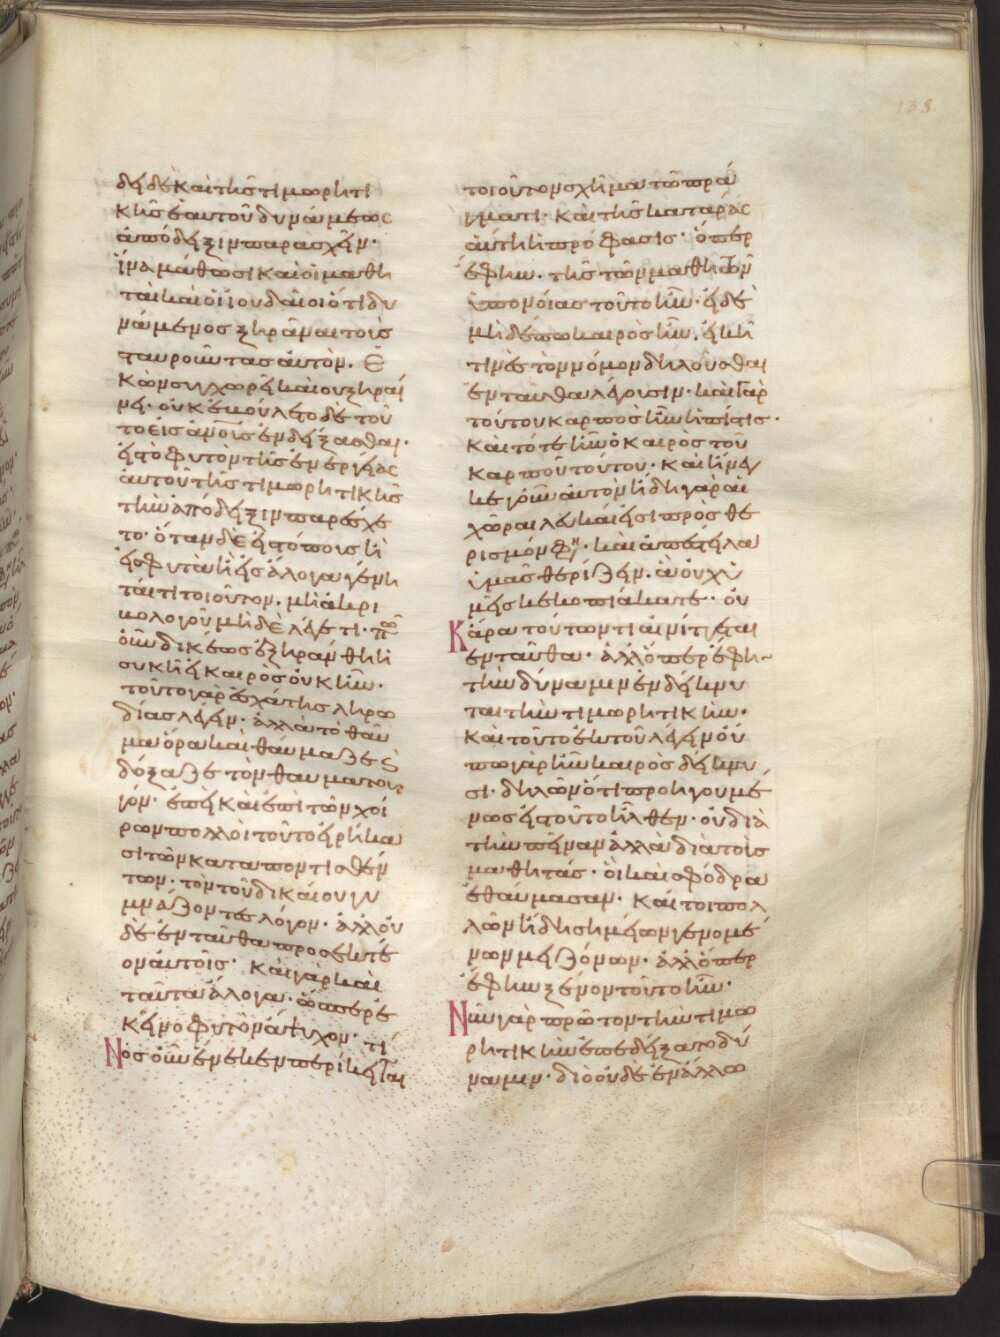 δει δὲ καὶ τῆς τιμωρητι
κῆς ἑαυτοῦ δυνάμεως
ἀπόδειξιν παρασχεῖν·
ἵνα μάθωσι καὶ οἱ μαθη
ταὶ καὶ οἱ ἰουδαῖοι ὅτι δυ
νάμενος ξηρᾶναι τοὺς
σταυροῦντας αὐτὸν. ἑ
κὼν συγχωρεῖ καὶ οὐ ξηραί
νει· οὐκ ἐβούλετο δὲ τοῦ
το εἰς ἀνοις ἐνδείξασθαι·
εἰς τὸ φυτὸν τῆς ἐνεργείας
αὐτοῦ τῆς τιμωρητικῆς
τὴν ἀπόδειξιν παρέσχε
το· ὅταν δὲ εἰς τόπους ἢ
εἰς φυτὰ ἢ εἰς ἄλογα γένη
ταί τι τοιοῦτον. μὴ ἀκρι
βολογοῦ μηδὲ λέγε τί· πῶ
οὖν δικαίως ἐξηράνθη ἡ
συκῆ εἰ καιρὸς οὐκ ἦν·
τοῦτο γὰρ ἐσχάτης ληρω
δίας λέγειν· ἀλλὰ τὸ θαῦ
μα ὅρα καὶ θαύμαζε καὶ
δόξαζε τὸν θαυματουρ
γόν· ἐπεὶ καὶ ἐπὶ τῶν χοί
ρων πολλοὶ τοῦτο εἰρήκα
σι τῶν καταποντισθέν
των· τὸν τοῦ δικαίου γυ
μνάζοντες λόγον· ἀλλ' οὐ
δὲ ἐνταῦθα προσεκτέ
ον αὐτοῖς· καὶ γὰρ καὶ
ταῦτα ἄλογα· ὥσπερ ἐ
κεῖνο φυτὸν ἄψυχον· τί
Νος οὖν ἕνεκεν περίκειται
τοιοῦτον σχῆμα τῶ πρά
γματι· καὶ τῆς κατάρας
αὕτη ἡ πρόφασις· ὅπερ
ἔφην. τῆς τῶν μαθητῶν
ὑπονοίας τοῦτο ἦν· εἰ δὲ
μηδέπω καιρὸς ἦν. εἰκῆ
τινὲς τὸν νόμον δηλοῦσθαι
ἐνταῦθα λέγουσιν· καὶ γὰρ
τούτου καρπὸς ἦν ἡ πίστις·
καὶ τότε ἦν ὁ καιρὸς τοῦ
καρποῦ τούτου· καὶ ἤνεγ
κε γοῦν αὐτὸν ἤδη γὰρ αἱ
χῶραι λευκαί εἰσι πρὸς θε
ρισμόν φη· καὶ ἀπέστειλα
ὑμᾶς θερίζειν. ἃ οὐχ ὑ
μεῖς κεκοπιάκατε· οὐ
Κἄρα τούτων τι αἰνίττεται
ἐνταῦθα· ἀλλ' ὅπερ ἔφην
τὴν δύναμιν ἐνδείκνυ
ται τὴν τιμωρητικήν·
καὶ τοῦτο ἐκ τοῦ λέγειν οὔ
πω γὰρ ἦν καιρὸς δείκνυ
σι· δηλῶν ὅτι προηγουμέ
νως εἰς τοῦτο ἦλθεν· οὐ διὰ
τὴν πεῖναν ἀλλὰ διὰ τοὺς
μαθητάς· οἳ καὶ σφόδρα
ἐθαύμασαν· καίτοι πολ
λῶν ἤδη σημείων γενομέ
νων μειζόνων· ἀλλ' ὅπερ
ἔφην ξένον τοῦτο ἦν·
Νῦν γὰρ πρῶτον τὴν τιμω
ρητικὴν ἐπεδείξατο δύ
ναμιν· διὸ οὐδὲ ἐν ἄλλω